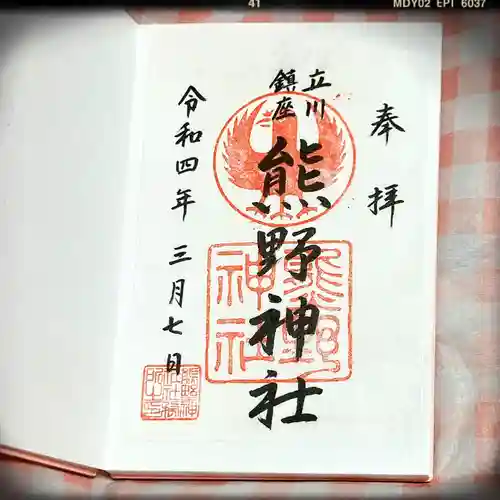 41
MDY02 EPT 6037
奉拝
立川
鎮座
熊野神社
令和四年 三月七日
熊野
神社